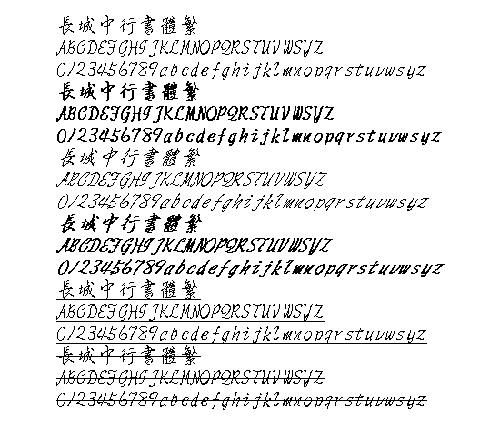 長城中行書體繁
ABCDEFGHIJKLMNOPQRSTUVWSYZ
0123456789abcdefghijklmnopqrstuvwsyz
長城中行書體繁
ABCDEFGHIJKLMNOPQRSTUVWSYZ
0123456789abcdefghijklmnopqrstuvwsyz
長城中行書體繁
ABCDEFGHIJKLMNOPQRSTUVWSYZ
0123456789abcdefghijklmnopqrstuvwsyz
長城中行書體繁
ABCDEFGHIJKLMNOPQRSTUVWSYZ
0123456789abcdefghijklmnopqrstuvwsyz
長城中行書體繁
ABCDEFGHIJKLMNOPQRSTUVWSYZ
0123456789abcdefghijklmnopqrstuvwsyz
長城中行書體繁
ABCDEFGHIJKLMNOPQRSTUVWSYZ
0123456789abcdefghijklmnopqrstuvwsyz